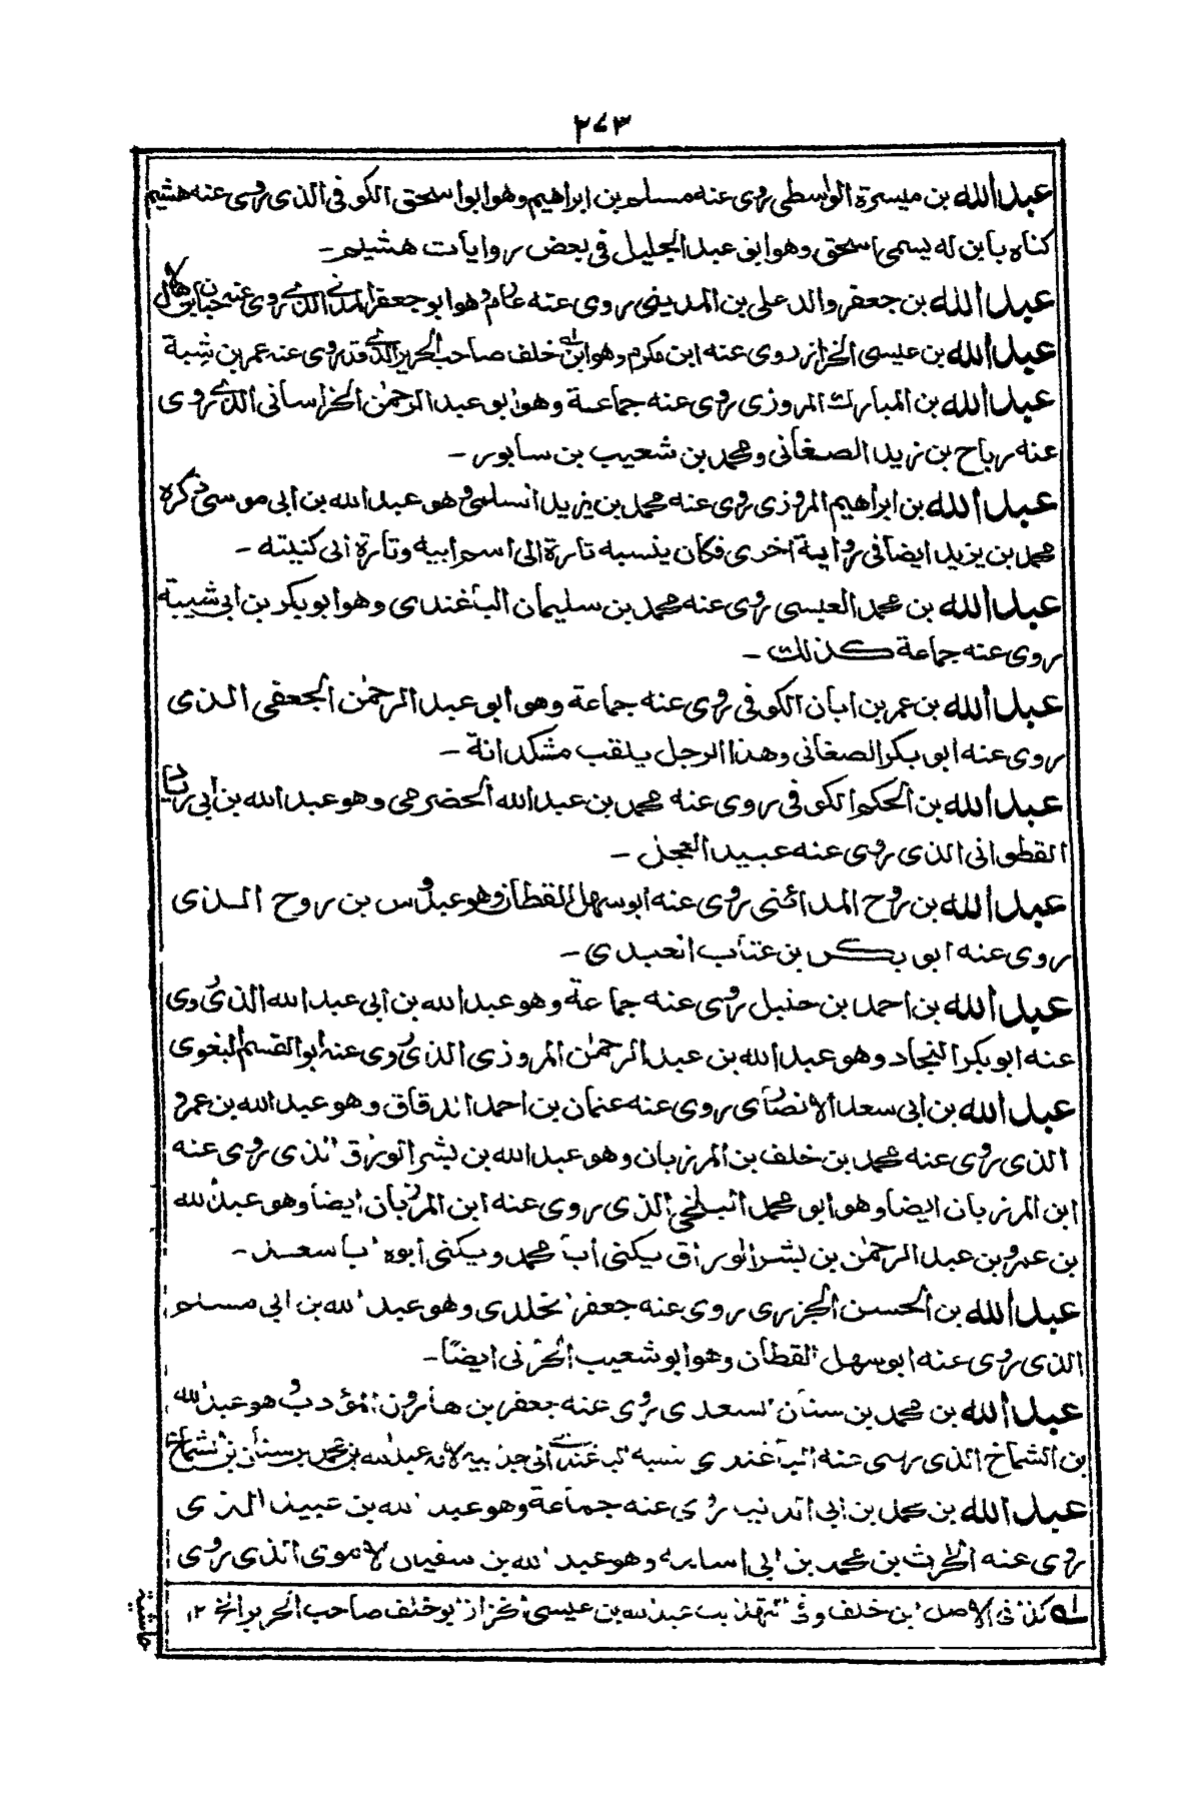 ٢٧٣
عبد الله بن ميسرة الواسطى روى عنه مسلم بن ابراهيم وهو ابو اسحق الكوفى الذى روى عنه هشيم
كناه بابن له يسمى اسحق وهو ابو عبد الجليل فى بعض روايات هشيم ـ
عبد الله بن جعفر والد على بن المدينى روى عنه وهو ابو جعفر المدنى الذى روى عنه هلال
عبد الله بن عيسى الخزاز روى عنه ابن مكرم وهو ابن خلف صاحب الحرير الذى قد روى عنه عمر بن شبة
عبد الله بن المبارك المروزى روى عنه جماعة وهو ابو عبد الرحمٰن الخراسانى الذى روى
عنه رباح بن زيد الصغانى ومحمد بن شعيب بن سابور ـ
عبد الله بن ابراهيم المروزى روى عنه محمد بن يزيد السلمى وهو عبد الله بن ابى موسى ذكره
محمد بن يزيد ايضا فى رواية اخرى فكان ينسبه تارة الى اسم ابيه وتارة الى كنيته ـ
عبد الله بن محمد العبسى روى عنه محمد بن سليمان الباغندى وهو ابو بكر بن ابى شيبة
روى عنه جماعة كذلك ـ
عبد الله بن عمر بن ابان الكوفى روى عنه جماعة وهو ابو عبد الرحمٰن الجعفى الذى
روى عنه ابو بكر الصغانى وهذا الرجل يلقب مشكدانة ـ
عبد الله بن الحكم الكوفى روى عنه محمد بن عبد الله الحضرمى وهو عبد الله بن ابى زياد
القطوانى الذى روى عنه عبيد العجل ـ
عبد الله بن روح المدائنى روى عنه ابو سهل القطان وهو عبدوس بن روح الذى
روى عنه ابو بكر بن عتاب العبدى ـ
عبد الله بن احمد بن حنبل روى عنه جماعة وهو عبد الله بن ابى عبد الله الذى روى
عنه ابو بكر النجاد وهو عبد الله بن عبد الرحمٰن المروزى الذى روى عنه ابو القسم البغوى
عبد الله بن ابى سعد الانصارى روى عنه عثمان بن احمد الدقاق وهو عبد الله بن عمرو
الذى روى عنه محمد بن خلف بن المرزبان وهو عبد الله بن بشر الوراق الذى روى عنه
ابن المرزبان ايضا وهو ابو محمد البلخى الذى روى عنه ابن المرزبان ايضا وهو عبد الله
بن عمرو بن عبد الرحمٰن بن بشر الوراق يكنى ابا محمد ويكنى ابوه ابا سعد ـ
عبد الله بن الحسن الجزرى روى عنه جعفر الخلدى وهو عبد الله بن ابى مسلم
الذى روى عنه ابو سهل القطان وهو ابو شعيب الحرانى ايضًا ـ
عبد الله بن محمد بن سنان السعدى روى عنه جعفر بن هارون المؤدب وهو عبد الله
بن الشماخ الذى روى عنه الباغندى نسبه الباغندى الى جد ابيه لانه عبد الله بن محمد بن سنان بن الشماخ
عبد الله بن محمد بن ابى الدنيا روى عنه جماعة وهو عبد الله بن عبيد الذى
روى عنه الحرث بن محمد بن ابى اسامة وهو عبد الله بن سفيان الاموى الذى روى
له كذا فى الاصل ابن خلف وفى التهذيب عبد الله بن عيسى الخزاز ابو خلف صاحب الحرير الخ ١٢
حاشية